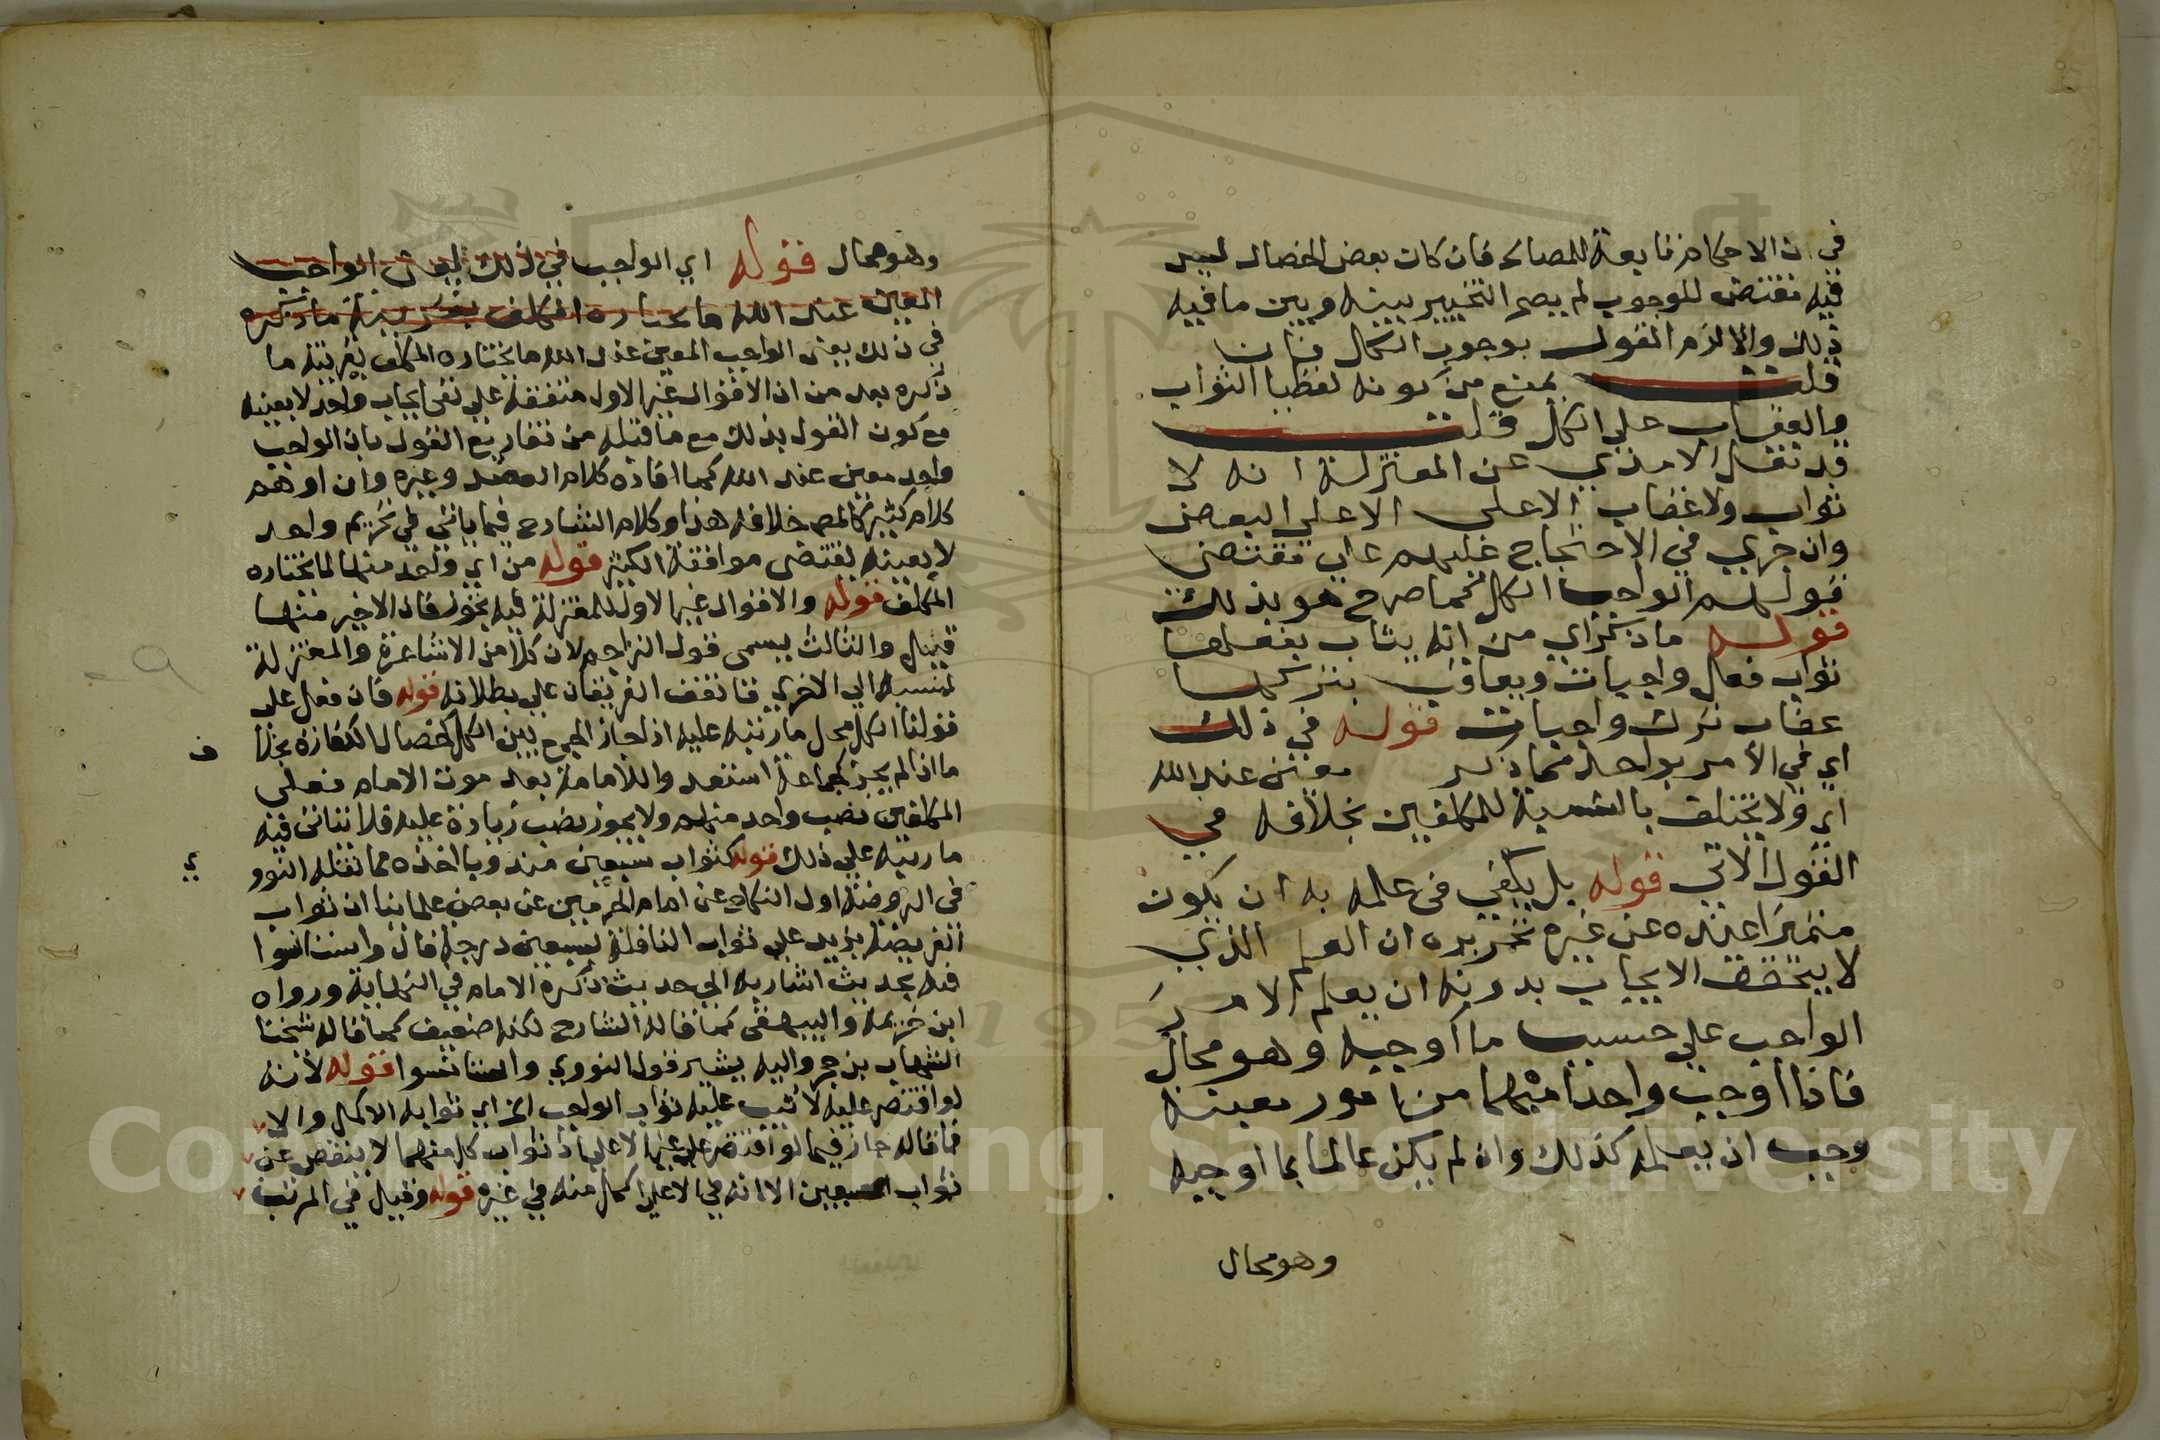 في ان الاحكام تابعة للمصالح فان كان بعض الخصال ليس
فيه مقتض للوجوب لم يصح التخيير بينه وبين ما فيه
ذلك والا لزم القول بوجوب الكل فان
قلت يمنع من كونه لفظيا الثواب
والعقاب على الكل قلت
قد نقل الامدي عن المعتزلة انه لا
ثواب ولا عقاب الا على الا على البعض
وان جرى في الاحتجاج عليهم على مقتضى
قولهم الواجب الكل كما صرح هو بذلك
قوله ما ذكر اي من انه يثاب بفعلها
ثواب فعل واجبات ويعاقب بتركها
عقاب ترك واجبات قوله في ذلك
اي في الأمر بواحد مما ذكر معين عند الله
اي ولا يختلف بالنسبة للمكلفين بخلافه في
القول الآتي قوله بل يكفي في علمه به ان يكون
متميزا عنده عن غيره تحريره ان العلم الذي
لا يتحقق الايجاب بدونه ان يعلم الامر
الواجب على حسب ما أوجبه وهو محال
فاذا أوجب واحدا مبهما من امور معينة
وجب ان يعلمه كذلك وان لم يكن عالما بما اوجبه
وهو محال
وهو محال قوله اي الواجب في ذلك يعني الواجب
المعين عند الله ما يختاره المكلف بقرينة ما ذكره
في ذلك يعني الواجب المعين عند الله ما يختاره المكلف بقرينة ما
ذكره بعد من ان الاقوال غير الاول متفقة على نفي ايجاب واحد لا بعينه
مع كون القول بذلك مع ما قبله من تفاريع القول بان الواجب
واحد معين عند الله كما افاده كلام العضد وغيره وان اوهم
كلام كثير كالمص خلافه هذا وكلام الشارح فيما يأتي في تحريم واحد
لا بعينه يقتضي موافقة الكثير قوله من اي واحد منها لما يختاره
المكلف قوله والاقوال غير الاول للمعتزلة فيه تجوز فان الاخير منها
قيل والثالث يسمى قول التراجم لان كلا من الاشاعرة والمعتزلة
تنسبه الى الاخرى فاتفق الفريقان على بطلانه قوله فان فعل على
قولنا الكل محل ما رتبه عليه اذا جاز الجمع بين الكل كخصال الكفارة بخلا
ف
ما اذا لم يجز كجماعة استعدوا للامامة بعد موت الامام فعلى
المكلفين نصب واحد منهم ولا يجوز نصب زيادة عليه فلا يتأتى فيه
ما رتبه على ذلك قوله كثواب سبعين مندوبا اخذه مما نقله النوو
ي
في الروضة اول النكاح عن امام الحرمين عن بعض علمائنا ان ثواب
الفريضة يزيد على ثواب النافلة بسبعين درجة قال واستانسوا
فيه بحديث اشار به الى حديث ذكره الامام في النهاية ورواه
ابن خزيمة والبيهقي كما قاله الشارح لكنه ضعيف كما قاله شيخنا
الشهاب بن حجر واليه يشير قول النووي واستانسوا قوله لأنه
لو اقتصر عليه لأثيب عليه ثواب الواجب الخ اي ثوابه الاكمل والا
فما قاله جاز فيما لو اقتصر على غير الاعلى اذ ثواب كل منهما لا ينقص عن
ثواب السبعين الا انه في الاعلى اكمل منه في غيره قوله وقيل في المرتب